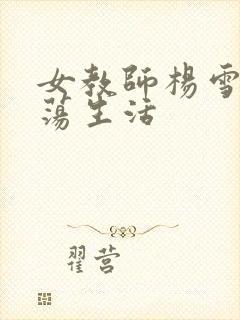 女教師楊雪
蕩生活
翟营